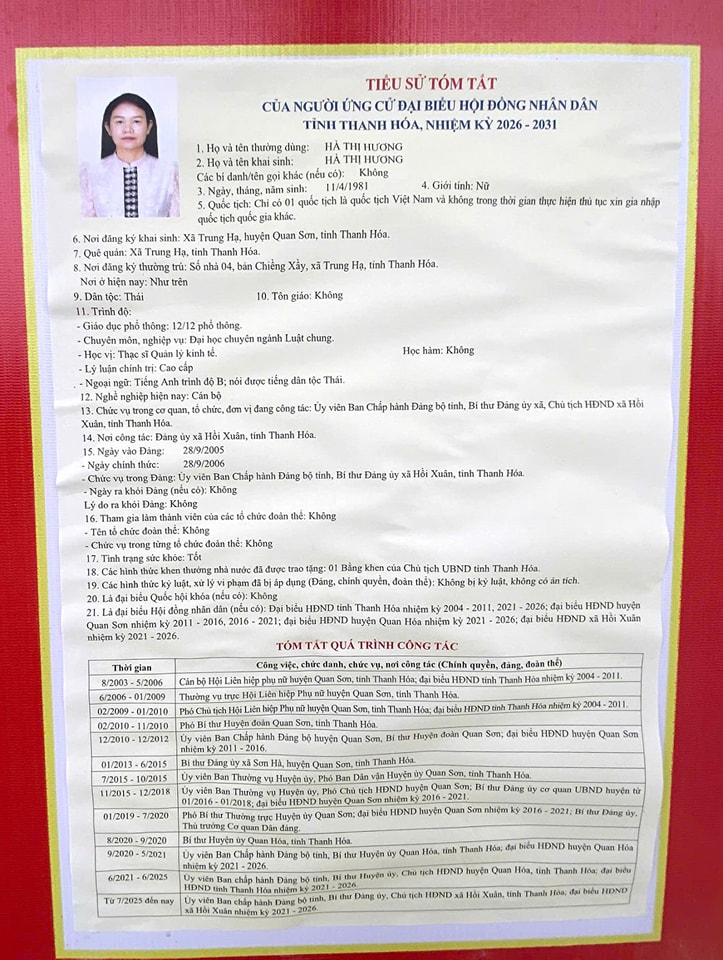 TIỂU SỬ TÓM TẮT
CỦA NGƯỜI ỨNG CỬ ĐẠI BIỂU HỘI ĐỒNG NHÂN DÂN
TỈNH THANH HÓA, NHIỆM KỲ 2026 - 2031
1. Họ và tên thường dùng: HÀ THỊ HƯƠNG
2. Họ và tên khai sinh: HÀ THỊ HƯƠNG
Các bí danh/tên gọi khác (nếu có): Không
3. Ngày, tháng, năm sinh: 11/4/1981 4. Giới tính: Nữ
5. Quốc tịch: Chỉ có 01 quốc tịch là quốc tịch Việt Nam và không trong thời gian thực hiện thủ tục xin gia nhập
quốc tịch quốc gia khác.
6. Nơi đăng ký khai sinh: Xã Trung Hạ, huyện Quan Sơn, tỉnh Thanh Hóa.
7. Quê quán: Xã Trung Hạ, tỉnh Thanh Hóa.
8. Nơi đăng ký thường trú: Số nhà 04, bản Chiềng Xầy, xã Trung Hạ, tỉnh Thanh Hóa.
Nơi ở hiện nay: Như trên
9. Dân tộc: Thái 10. Tôn giáo: Không
11. Trình độ:
- Giáo dục phổ thông: 12/12 phổ thông.
- Chuyên môn, nghiệp vụ: Đại học chuyên ngành Luật chung.
- Học vị: Thạc sĩ Quản lý kinh tế. Học hàm: Không
- Lý luận chính trị: Cao cấp
- Ngoại ngữ: Tiếng Anh trình độ B; nói được tiếng dân tộc Thái.
12. Nghề nghiệp hiện nay: Cán bộ
13. Chức vụ trong cơ quan, tổ chức, đơn vị đang công tác: Ủy viên Ban Chấp hành Đảng bộ tỉnh, Bí thư Đảng ủy xã, Chủ tịch HĐND xã Hồi
Xuân, tỉnh Thanh Hóa.
14. Nơi công tác: Đảng ủy xã Hồi Xuân, tỉnh Thanh Hóa.
15. Ngày vào Đảng: 28/9/2005
- Ngày chính thức: 28/9/2006
- Chức vụ trong Đảng: Ủy viên Ban Chấp hành Đảng bộ tỉnh, Bí thư Đảng ủy xã Hồi Xuân, tỉnh Thanh Hóa.
- Ngày ra khỏi Đảng (nếu có): Không
Lý do ra khỏi Đảng: Không
16. Tham gia làm thành viên của các tổ chức đoàn thể: Không
- Tên tổ chức đoàn thể: Không
- Chức vụ trong từng tổ chức đoàn thể: Không
17. Tình trạng sức khỏe: Tốt
18. Các hình thức khen thưởng nhà nước đã được trao tặng: 01 Bằng khen của Chủ tịch UBND tỉnh Thanh Hóa.
19. Các hình thức kỷ luật, xử lý vi phạm đã bị áp dụng (Đảng, chính quyền, đoàn thể): Không bị kỷ luật, không có án tích.
20. Là đại biểu Quốc hội khóa (nếu có): Không
21. Là đại biểu Hội đồng nhân dân (nếu có): Đại biểu HĐND tỉnh Thanh Hóa nhiệm kỳ 2004 - 2011, 2021 - 2026; đại biểu HĐND huyện
Quan Sơn nhiệm kỳ 2011 - 2016, 2016 - 2021; đại biểu HĐND huyện Quan Hóa nhiệm kỳ 2021 - 2026; đại biểu HĐND xã Hồi Xuân
nhiệm kỳ 2021 - 2026.
TÓM TẮT QUÁ TRÌNH CÔNG TÁC
Thời gian Công việc, chức danh, chức vụ, nơi công tác (Chính quyền, đảng, đoàn thể)
8/2003 - 5/2006 Cán bộ Hội Liên hiệp phụ nữ huyện Quan Sơn, tỉnh Thanh Hóa; đại biểu HĐND tỉnh Thanh Hóa nhiệm kỳ 2004 - 2011.
6/2006 - 01/2009 Thường vụ trực Hội Liên hiệp Phụ nữ huyện Quan Sơn, tỉnh Thanh Hóa.
02/2009 - 01/2010 Phó Chủ tịch Hội Liên hiệp Phụ nữ huyện Quan Sơn, tỉnh Thanh Hóa; đại biểu HĐND tỉnh Thanh Hóa nhiệm kỳ 2004 - 2011.
02/2010 - 11/2010 Phó Bí thư Huyện đoàn Quan Sơn, tỉnh Thanh Hóa.
12/2010 - 12/2012 Ủy viên Ban Chấp hành Đảng bộ huyện Quan Sơn, Bí thư Huyện đoàn Quan Sơn; đại biểu HĐND huyện Quan Sơn
nhiệm kỳ 2011 - 2016.
01/2013 - 6/2015 Bí thư Đảng ủy xã Sơn Hà, huyện Quan Sơn, tỉnh Thanh Hóa.
7/2015 - 10/2015 Ủy viên Ban Thường vụ Huyện ủy, Phó Ban Dân vận Huyện ủy Quan Sơn, tỉnh Thanh Hóa.
11/2015 - 12/2018 Ủy viên Ban Thường vụ Huyện ủy, Phó Chủ tịch HĐND huyện Quan Sơn; Bí thư Đảng ủy cơ quan UBND huyện từ
01/2016 - 01/2018; đại biểu HĐND huyện Quan Sơn nhiệm kỳ 2016 - 2021.
01/2019 - 7/2020 Phó Bí thư Thường trực Huyện ủy Quan Sơn; đại biểu HĐND huyện Quan Sơn nhiệm kỳ 2016 - 2021; Bí thư Đảng ủy,
Thủ trưởng Cơ quan Dân đảng.
8/2020 - 9/2020 Bí thư Huyện ủy Quan Hóa, tỉnh Thanh Hóa.
9/2020 - 5/2021 Ủy viên Ban Chấp hành Đảng bộ tỉnh, Bí thư Huyện ủy Quan Hóa, tỉnh Thanh Hóa; đại biểu HĐND huyện Quan Hóa
nhiệm kỳ 2021 - 2026.
6/2021 - 6/2025 Ủy viên Ban Chấp hành Đảng bộ tỉnh, Bí thư Huyện ủy, Chủ tịch HĐND huyện Quan Hóa, tỉnh Thanh Hóa; đại biểu
HĐND tỉnh Thanh Hóa nhiệm kỳ 2021 - 2026.
Từ 7/2025 đến nay Ủy viên Ban Chấp hành Đảng bộ tỉnh, Bí thư Đảng ủy, Chủ tịch HĐND xã Hồi Xuân, tỉnh Thanh Hóa; đại biểu HĐND
xã Hồi Xuân nhiệm kỳ 2021 - 2026.